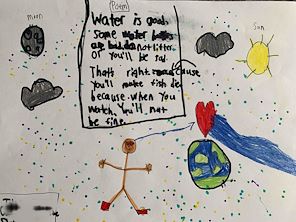 (Poem)
moon
Sun
Water is good
Some water bottles
are bad. do not litter.
Or you'll be sad.
Thats right. cause
you'll make fish die
because when you
watch. You'll not
be fine.